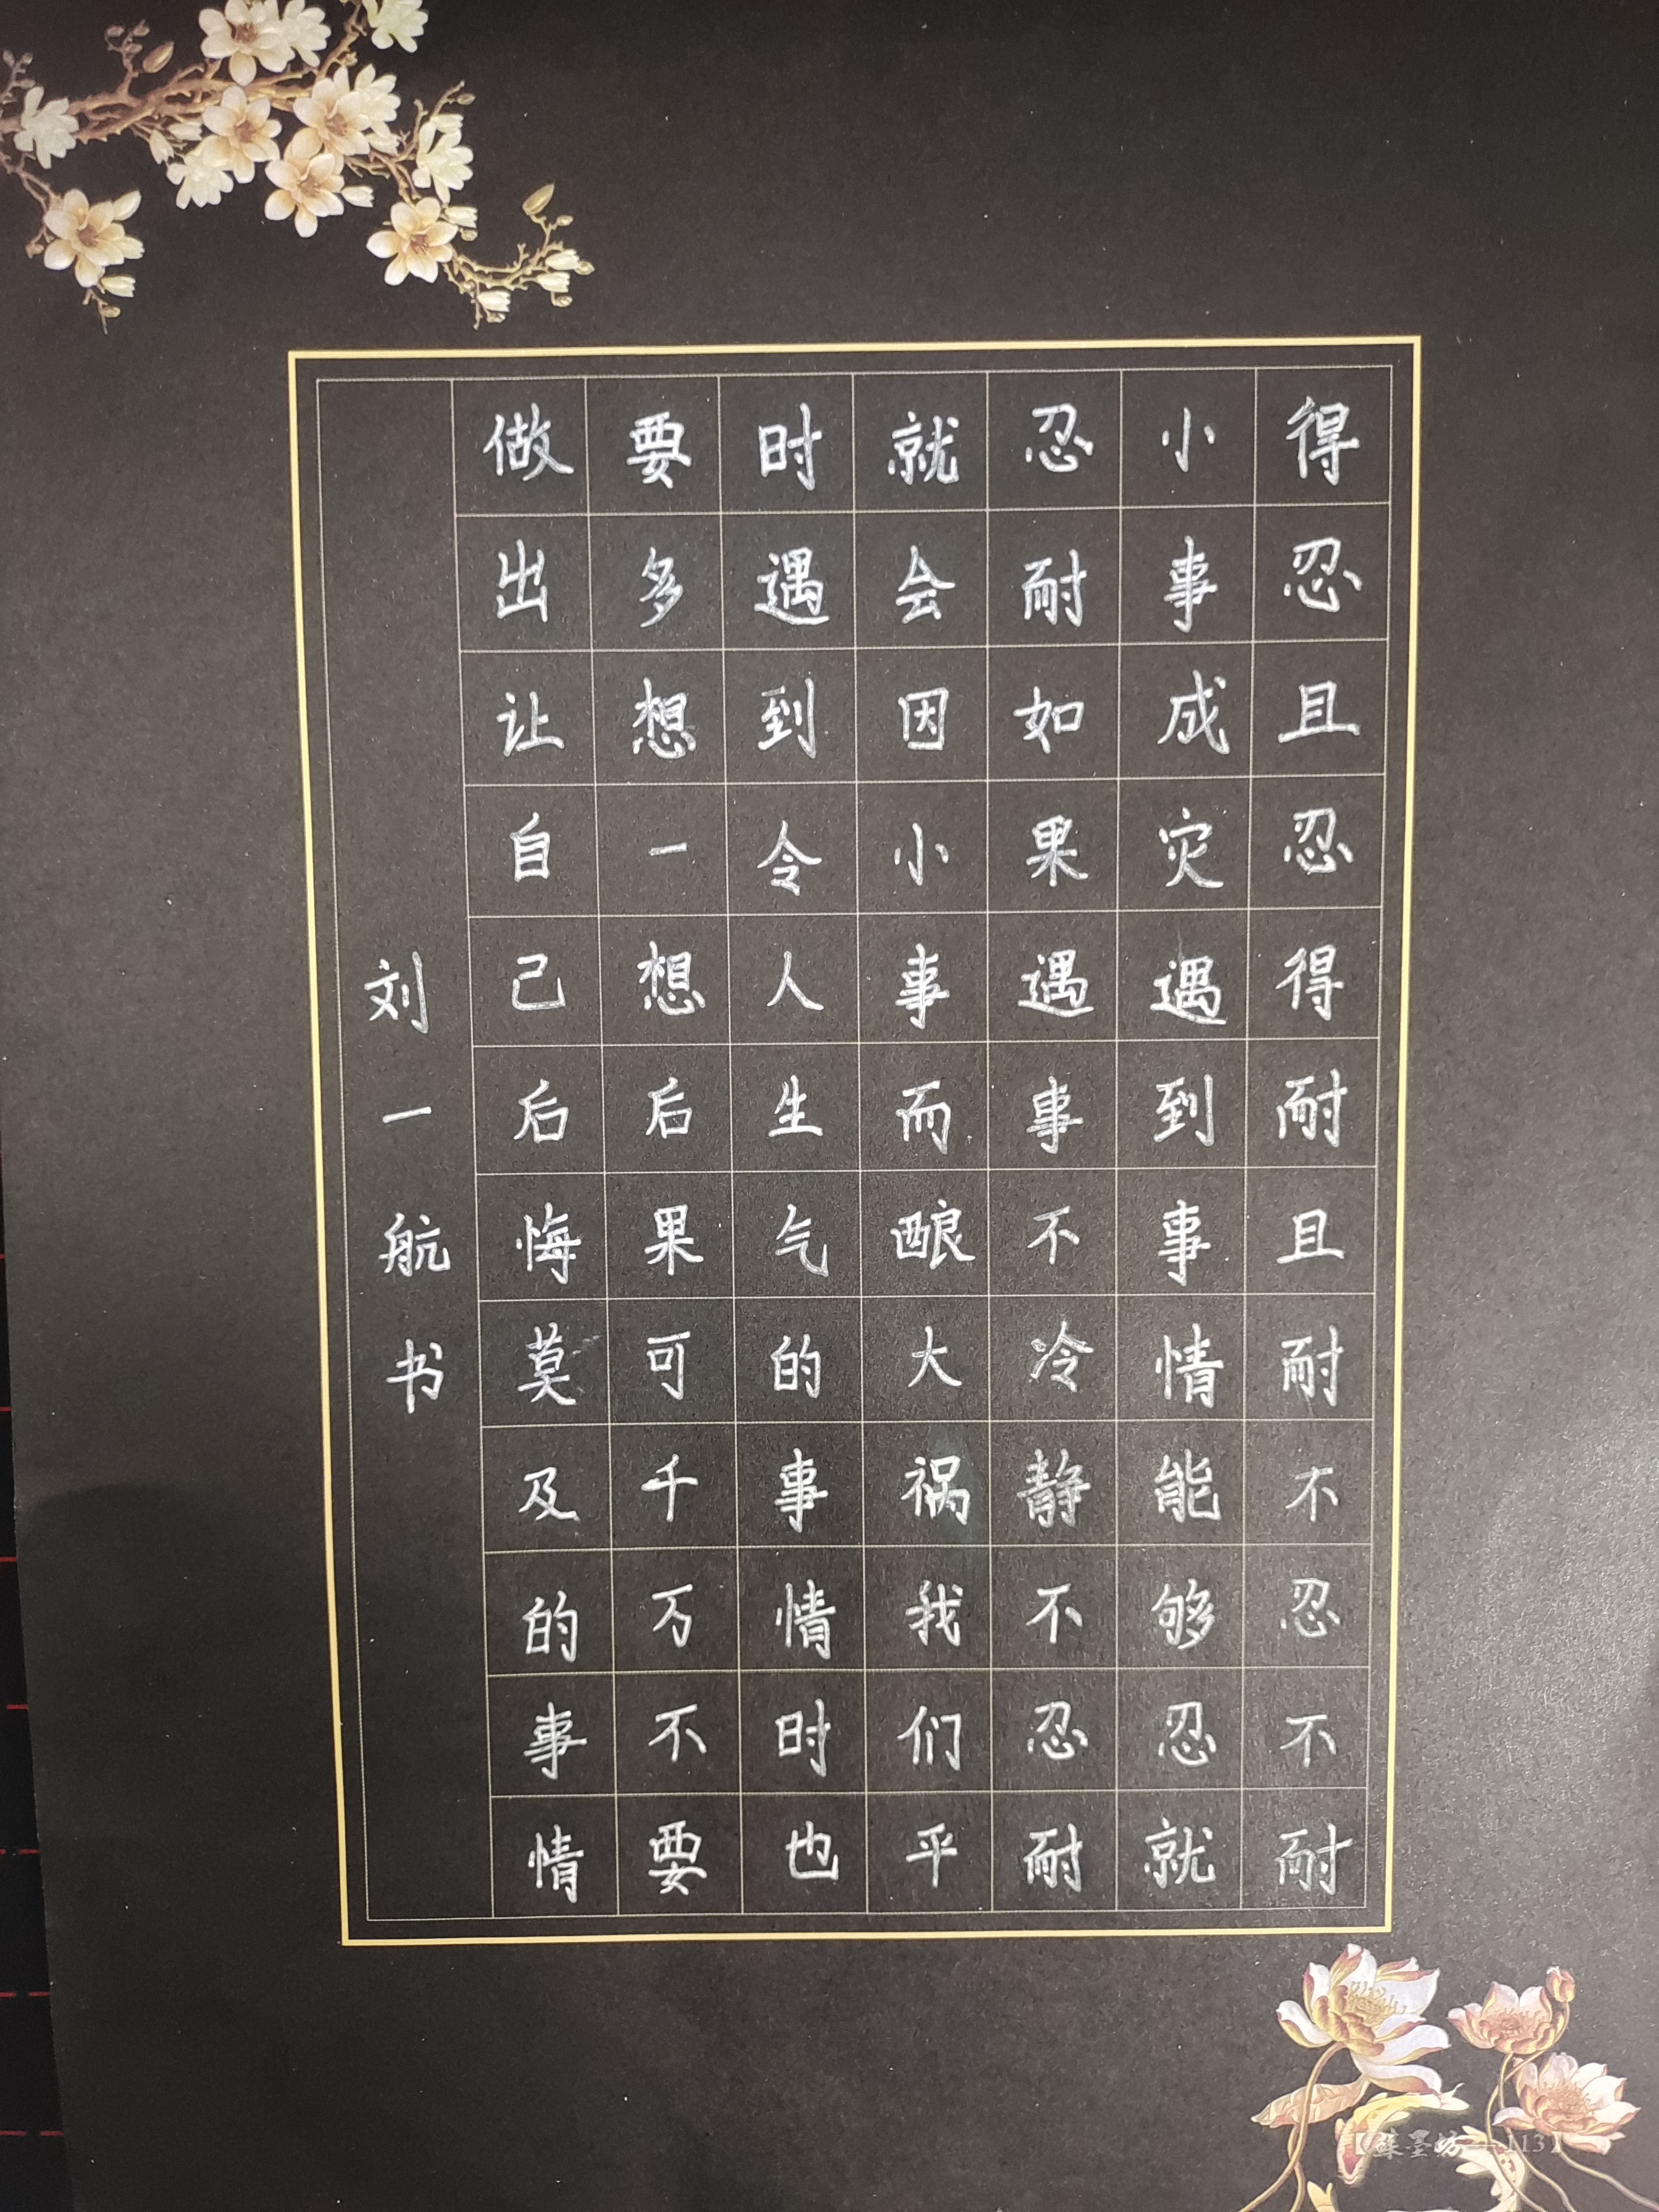 得忍且忍得耐且耐不忍不耐
小事成灾遇到事情能够忍就
忍耐如果遇事不冷静不忍耐
就会因小事而酿大祸我们平
时遇到令人生气的事情时也
要多想一想后果可千万不要
做出让自己后悔莫及的事情
刘一航书
【蘇墨坊—113】